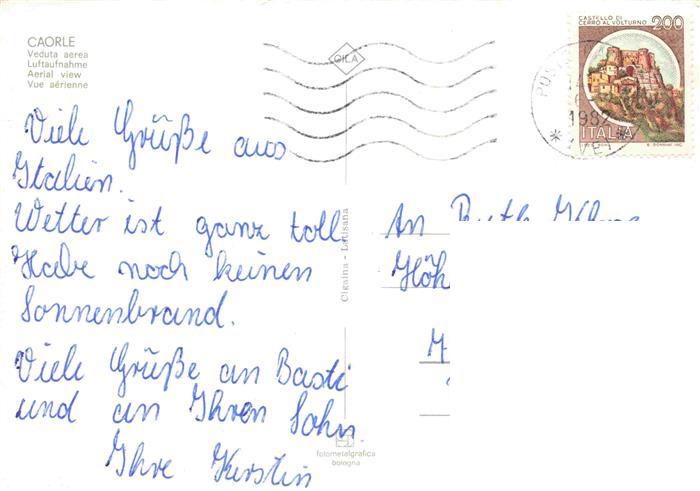 CAORLE
Veduta aerea
Luftaufnahme
Aerial view
Vue aérienne
GILA
CASTELLO DI
CERRO AL VOLTURNO
200
1982
ITALIA
Viele Grüße aus
Italien.
Wetter ist ganz toll
Habe noch keinen
Sonnenbrand.
Viele Grüße an Basti
und an Ihren Sohn.
Ihre Kerstin
Cigaina - Latisana
An Ruth
Höh
fotometalgrafica
bologna